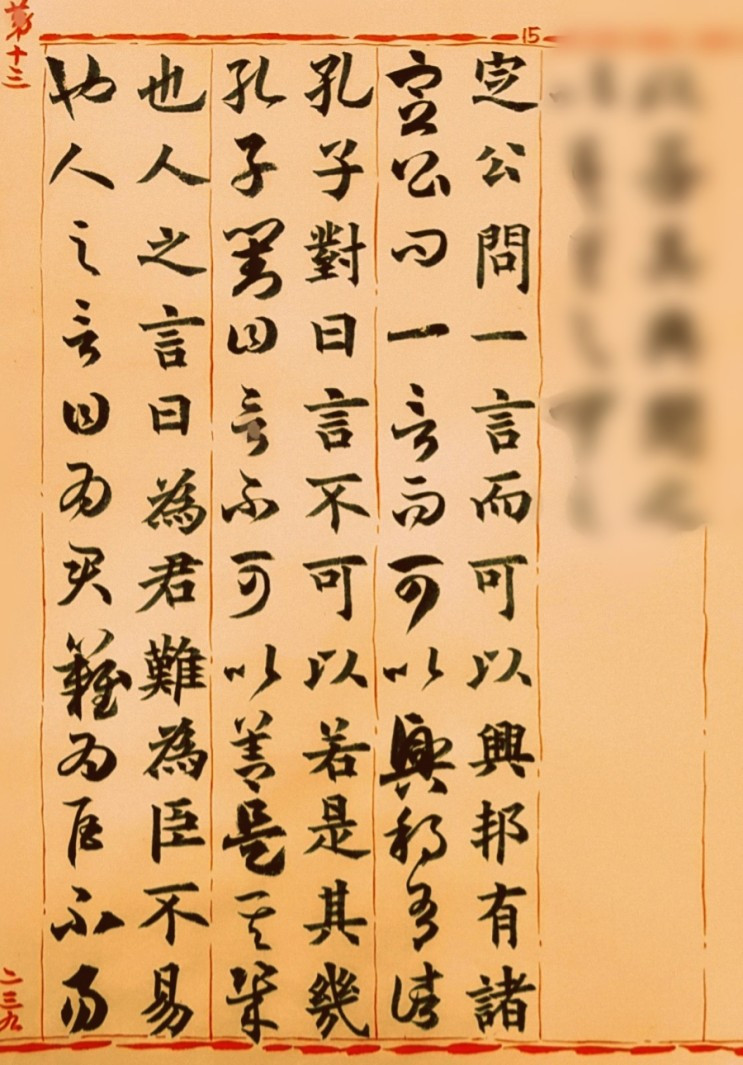 15
定公問一言而可以興邦有諸
定公问一言而可以興邦有诸
孔子對曰言不可以若是其幾
孔子對曰言不可以若是其幾
也人之言曰為君難為臣不易
也人之言曰为君難为臣不易
第十三
二三九